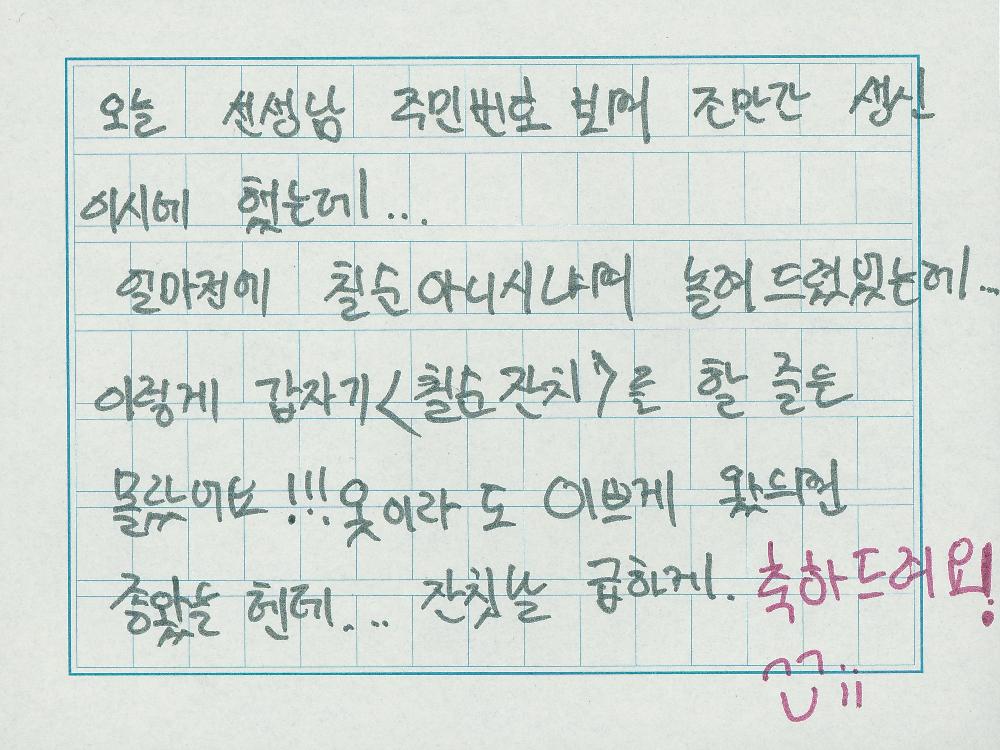 오늘 선생님 주민번호 보며 조만간 생신
이시에 했는데...
얼마전에 칠순 아니시냐며 놀려 드렸었는데...
이렇게 갑자기 <칠순 잔치>를 할 줄은
몰랐어요!!! 옷이라도 이쁘게 왔드면
좋왔을 헨데... 잔칫날 급하게. 축하드려요!